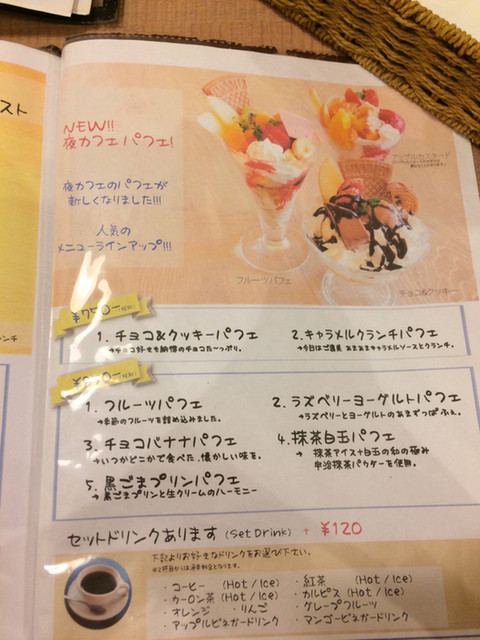 スト
NEW!!
夜カフェパフェ!
夜カフェのパフェが
新しくなりました!!!
人気の
メニューラインアップ!!!
アップルカスタード
フルーツパフェ
チョコ&クッキー
¥750-
1. チョコ&クッキーパフェ
→チョコ好きも納得のチョコたーっぷり。
2. キャラメルクランチパフェ
→今日はご褒美 あまあまキャラメルソースとクランチ。
1. フルーツパフェ
→季節のフルーツを詰め込みました。
2. ラズベリーヨーグルトパフェ
→ラズベリーとヨーグルトのあまずっぱふぇ。
3. チョコバナナパフェ
→いつかどこかで食べた、懐かしい味を。
4. 抹茶白玉パフェ
→ 抹茶アイス+白玉の和の極み
宇治抹茶パウダーを使用。
5. 黒ごまプリンパフェ
→ 黒ごまプリンと生クリームのハーモニー
セットドリンクあります (Set Drink) + ¥120
下記よりお好きなドリンクをお選び下さい。
・コーヒー (Hot / Ice) ・紅茶 (Hot / Ice)
・ウーロン茶 (Hot / Ice) ・カルピス (Hot / Ice)
・オレンジ ・りんご ・グレープフルーツ
・アップルビネガードリンク ・マンゴービネガードリンク